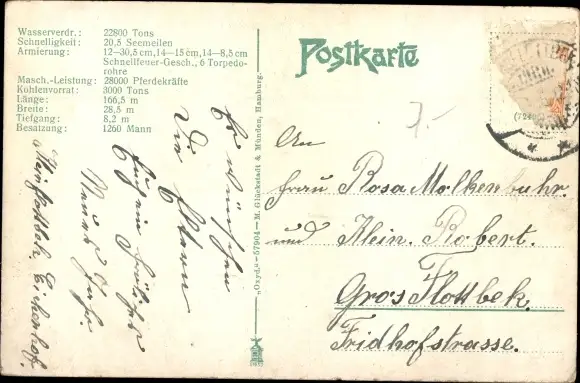 Wasserverdr.: 22800 Tons
Schnelligkeit: 20,5 Seemeilen
Armierung: 12-30,5 cm, 14-15 cm, 14-8,5 cm
Schnellfeuer-Gesch., 6 Torpedo-
rohre
Masch.-Leistung: 28000 Pferdekräfte
Kohlenvorrat: 3000 Tons
Länge: 166,5 m
Breite: 28,5 m
Tiefgang: 8,2 m
Besatzung: 1260 Mann
Postkarte
7.-
"Oxyd"-57904-M. Glückstadt & Münden, Hamburg.
Es wünschen
Die Eltern
Euch ein
Neues Jahr.
An
Frau Rosa Molkenbuhr.
und Klein. Robert.
Gros Flottbek.
Fridhofstrasse.